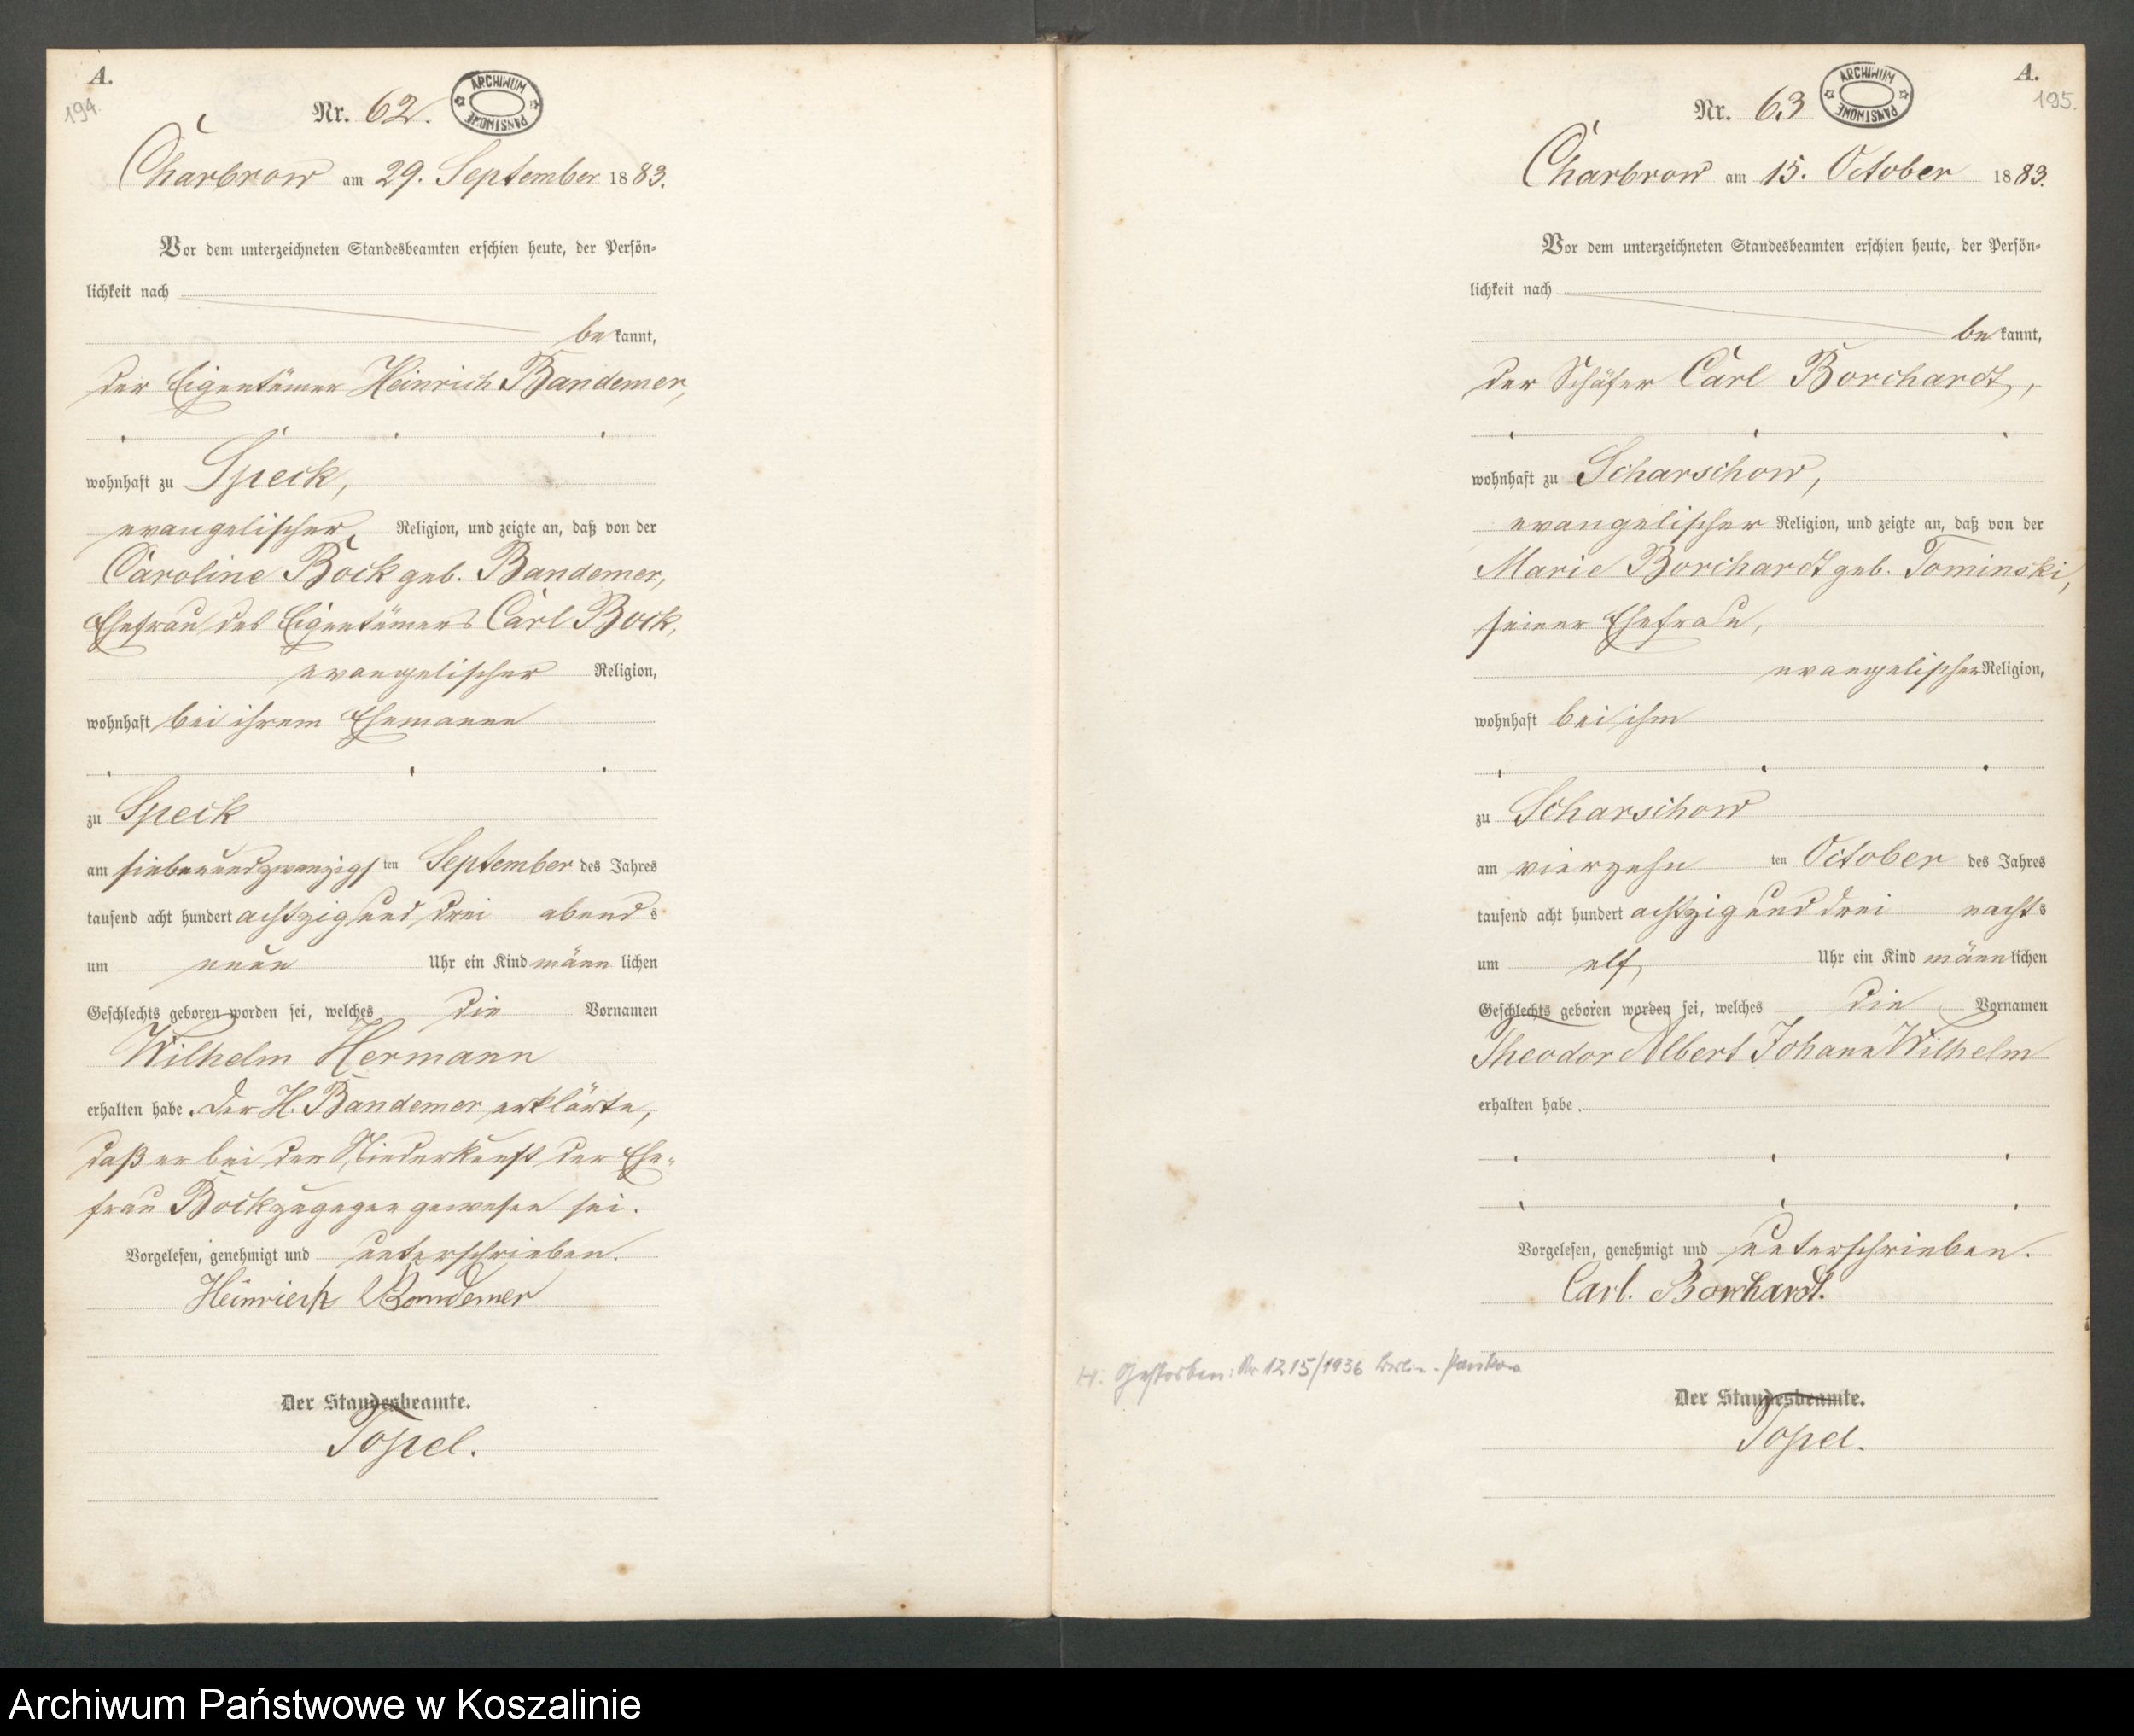 A.
194.
Nr. 62.
ARCHIWUM PAŃSTWOWE
Charbrow am 29. September 1883.
Vor dem unterzeichneten Standesbeamten erschien heute, der Persön-
lichkeit nach
bekannt,
der Eigentümer Heinrich Bandemer,
wohnhaft zu Speck,
evangelischer Religion, und zeigte an, daß von der
Caroline Bock geb. Bandemer,
Ehefrau des Eigentümers Carl Bock,
evangelischer Religion,
wohnhaft bei ihrem Ehemanne
zu Speck
am siebenundzwanzigsten September des Jahres
tausend acht hundert achtzig und drei abends
um neun Uhr ein Kind männlichen
Geschlechts geboren worden sei, welches die Vornamen
Wilhelm Hermann
erhalten habe. Der H. Bandemer erklärte,
daß er bei der Niederkunft der Ehe-
frau Bock zugegen gewesen sei.
Vorgelesen, genehmigt und unterschrieben.
Heinrich Bandemer
Der Standesbeamte.
Topel.
A.
195.
Nr. 63
ARCHIWUM PAŃSTWOWE
Charbrow am 15. October 1883.
Vor dem unterzeichneten Standesbeamten erschien heute, der Persön-
lichkeit nach
bekannt,
der Schäfer Carl Borchardt,
wohnhaft zu Scharschow,
evangelischer Religion, und zeigte an, daß von der
Marie Borchardt geb. Tominski,
seiner Ehefrau,
evangelischer Religion,
wohnhaft bei ihm
zu Scharschow
am vierzehnten October des Jahres
tausend acht hundert achtzig und drei nachts
um elf Uhr ein Kind männlichen
Geschlechts geboren worden sei, welches die Vornamen
Theodor Albert Johann Wilhelm
erhalten habe.
Vorgelesen, genehmigt und unterschrieben.
Carl. Borchardt.
H. Gestorben: Nr 1215/1936 Berlin-Pankow
Der Standesbeamte.
Topel.
Archiwum Państwowe w Koszalinie